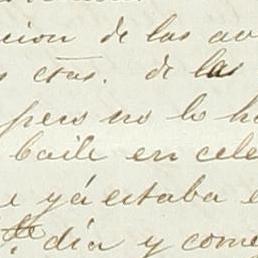 cion de las av
s ctas. de las
pero no lo h
baile en cele
ya estaba e
día y come